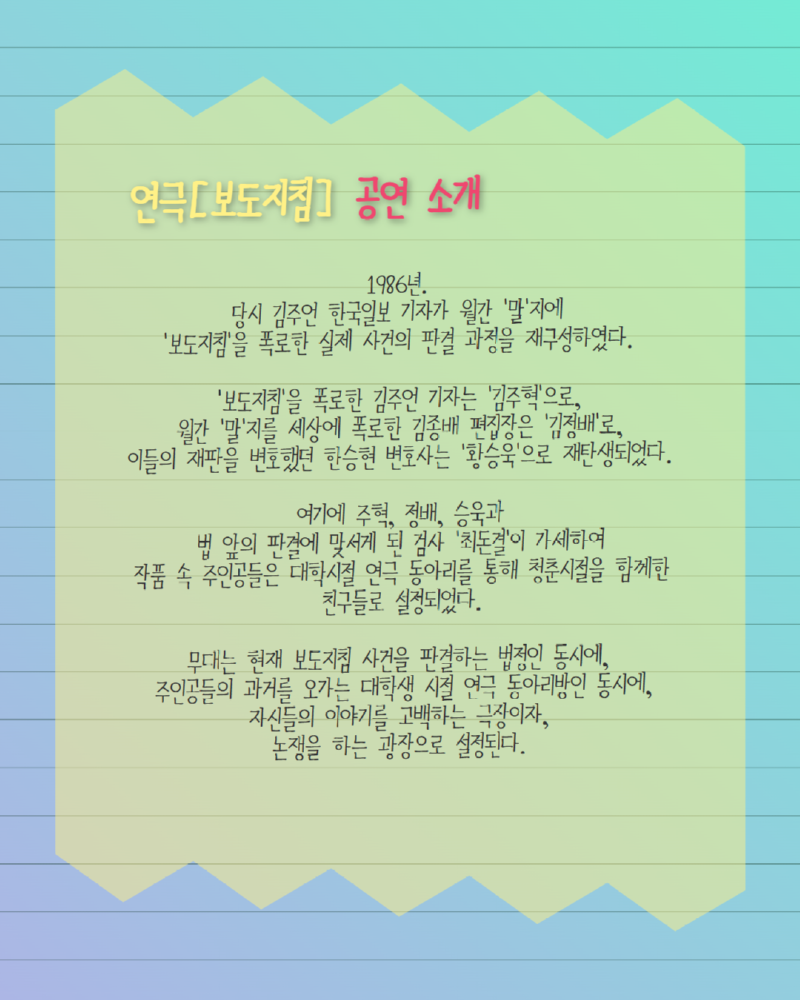 연극[보도지침] 공연 소개
1986년.
당시 김주언 한국일보 기자가 월간 '말'지에
'보도지침'을 폭로한 실제 사건의 판결 과정을 재구성하였다.
'보도지침'을 폭로한 김주언 기자는 '김주혁'으로,
월간 '말'지를 세상에 폭로한 김종배 편집장은 '김정배'로,
이들의 재판을 변호했던 한승헌 변호사는 '황승욱'으로 재탄생되었다.
여기에 주혁, 정배, 승욱과
법 앞의 판결에 맞서게 된 검사 '최돈결'이 가세하여
작품 속 주인공들은 대학시절 연극 동아리를 통해 청춘시절을 함께한
친구들로 설정되었다.
무대는 현재 보도지침 사건을 판결하는 법정인 동시에,
주인공들의 과거를 오가는 대학생 시절 연극 동아리방인 동시에,
자신들의 이야기를 고백하는 극장이자,
논쟁을 하는 광장으로 설정된다.